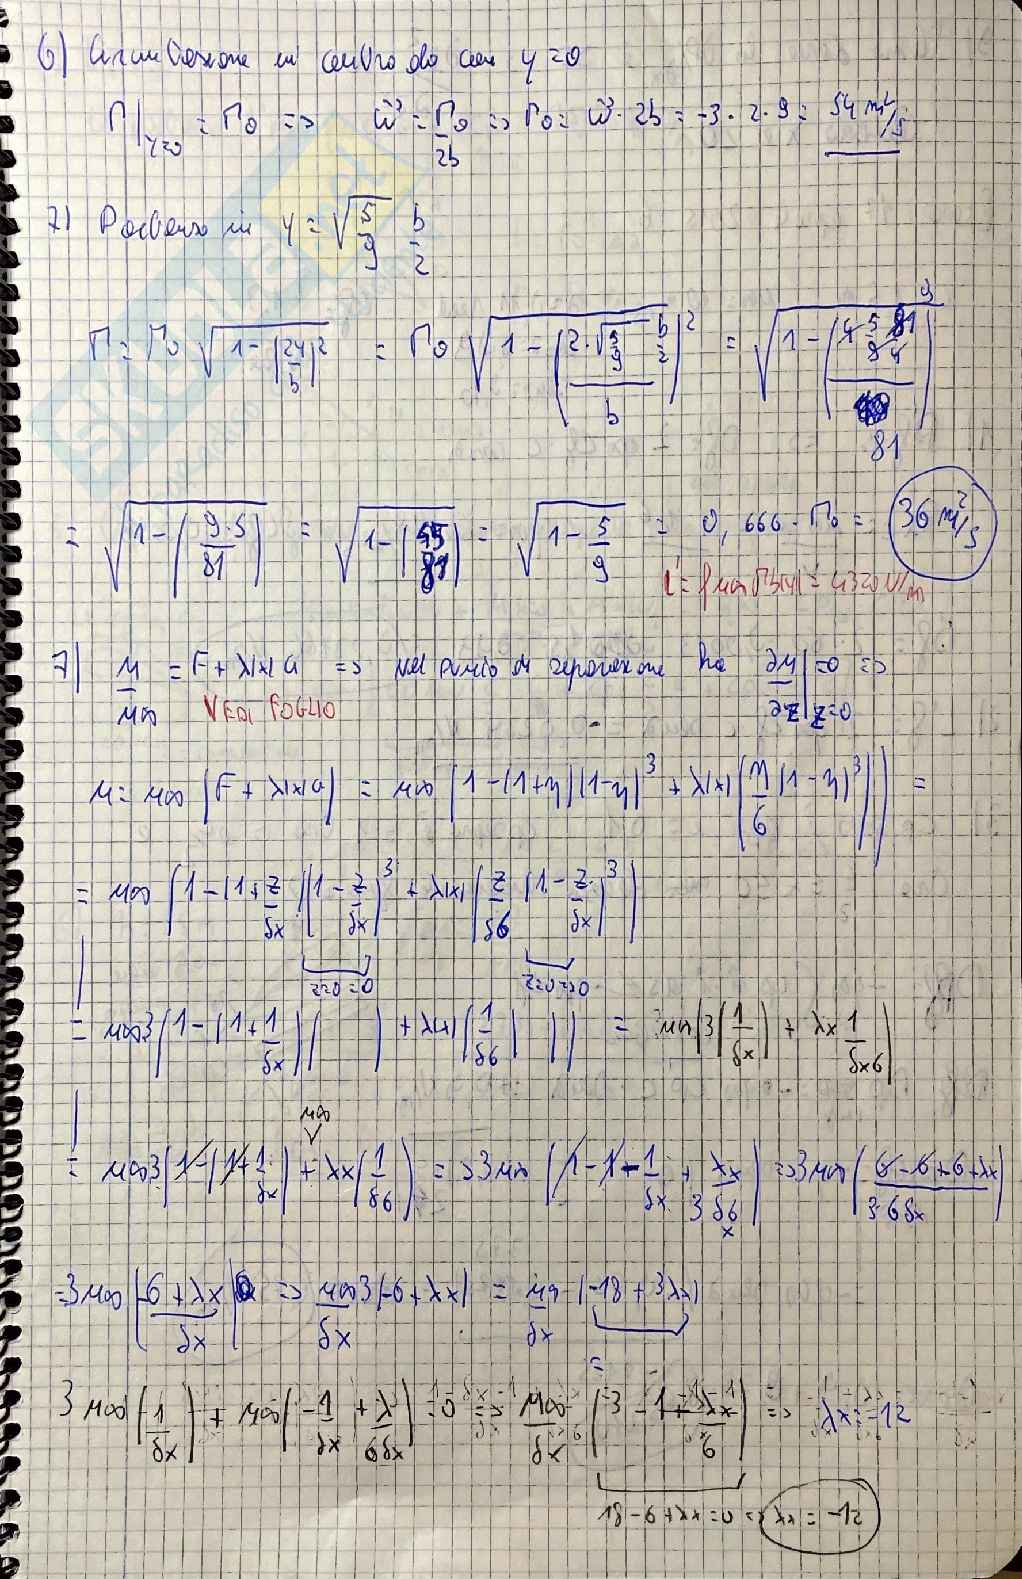 6) Circuitazione in centro ala con y=0
Γ|y=0 = Γ0 => w = Γ0/2b => Γ0 = w · 2b = -3 · 2 · 9 = 54 m²/s
7) Portanza in y = √(5/9) b/2
Γ = Γ0 √(1-(2y/b)²) = Γ0 √(1-(2·√(5/9) b/2 / b)²) = √(1-(4 5/9 81/4 / 81)) 9
= √(1-(9·5/81)) = √(1-(45/81)) = √(1-5/9) = 0,666 · Γ0 = 36 m²/s
L' = ρ u∞ Γ(y) = 4320 N/m
7) u/u∞ = F + λ(x) G => nel punto di separazione ho ∂u/∂z|z=0 =0 =>
VEDI FOGLIO
u = u∞ (F + λ(x) G) = u∞ (1-(1+η)(1-η)³ + λ(x) (η/6 (1-η)³)) =
= u∞ (1-(1+z/δx)(1-z/δx)³ + λ(x) (z/δ6 (1-z/δx)³)
z=0=0 z=0=>0
= u∞3 (1-(1+1/δx)( ) + λ(x) (1/δ6 ( )) = u∞(3(1/δx) + λx 1/δx6)
u∞
= u∞3 (1-(1+1/δx) + λx (1/δ6) => 3u∞ (1-1-1/δx + λx/3δ6x) => 3u∞ (6-6+6+λx / 3·6δx)
=3u∞ (-6+λx / δx) => u∞3/δx (-6+λx) = u∞/δx (-18+3λx)
=
3u∞ (1/δx) + u∞ (-1/δx + λ/6δx) =0 => u∞/δx (3-1+λx/6) => λx = -12
18-6+λx=0 => λx = -12